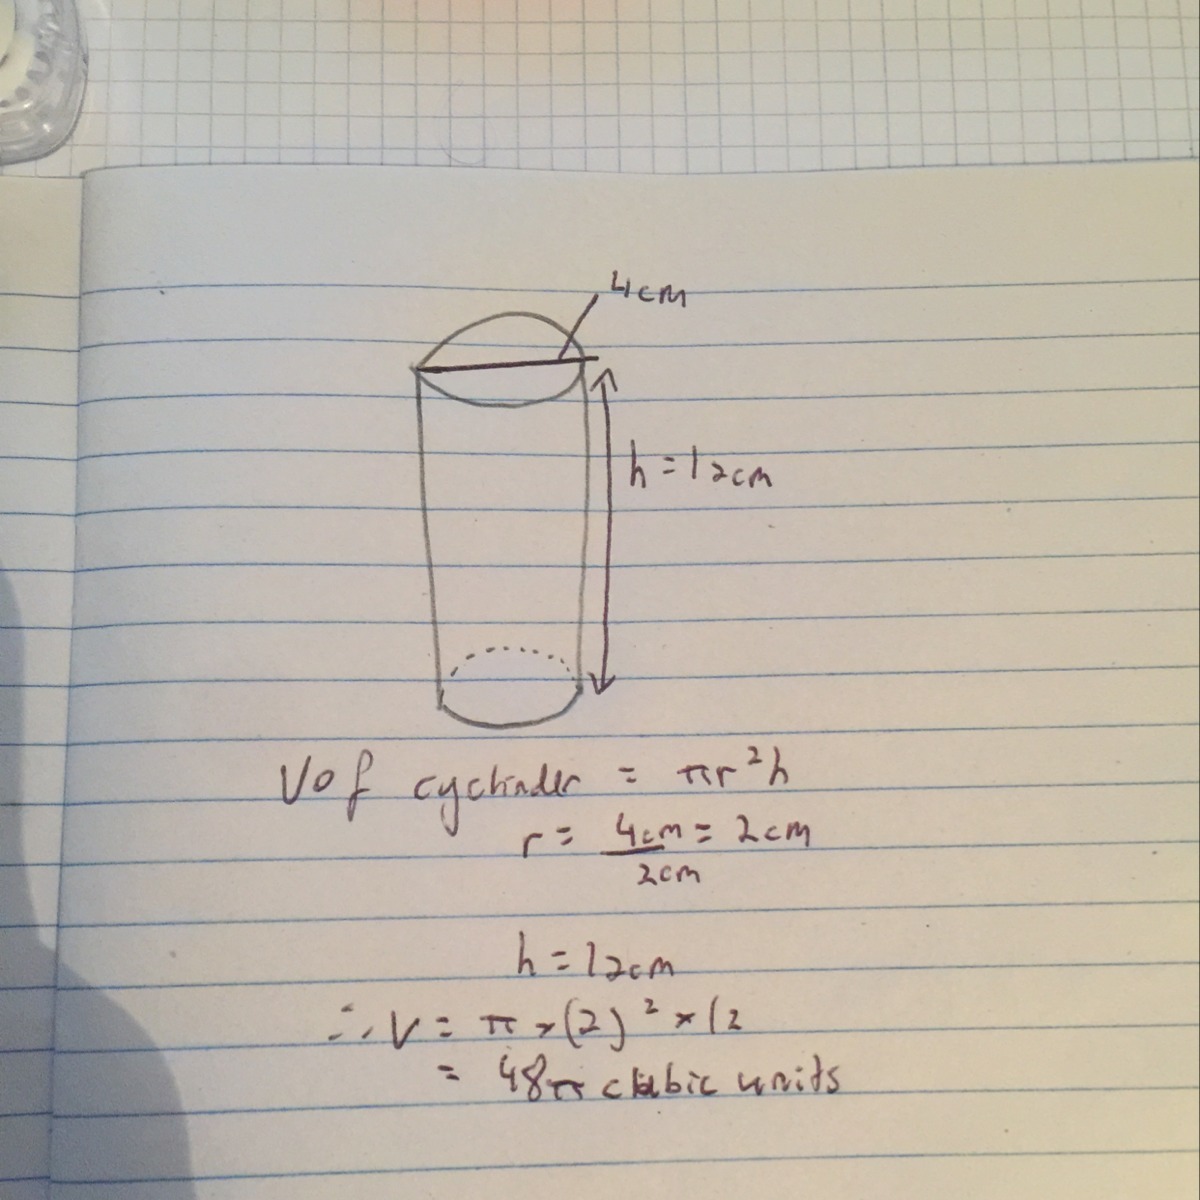 4cm
h = 12cm
V of cyclinder = πr²h
r = 4cm/2cm = 2cm
h = 12cm
∴ V = π × (2)² × 12
= 48π cubic units